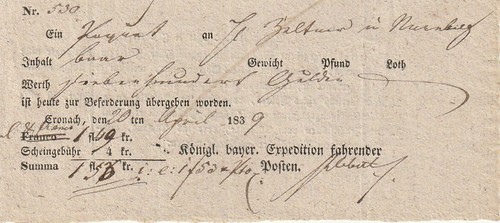 Nr. 530
Ein Paquet an J. Zeltner in Nürnberg
Inhalt baar Gewicht Pfund Loth
Werth siebenhundert Gulden
ist heute zur Beförderung übergeben worden.
Cronach, den 20 ten April 1839
Franco 1 fl. 49 kr.
Scheingebühr 4 kr. Königl. bayer. Expedition fahrender
Summa 1 fl. 53 kr. i: e: 1 f 53 x Posten.